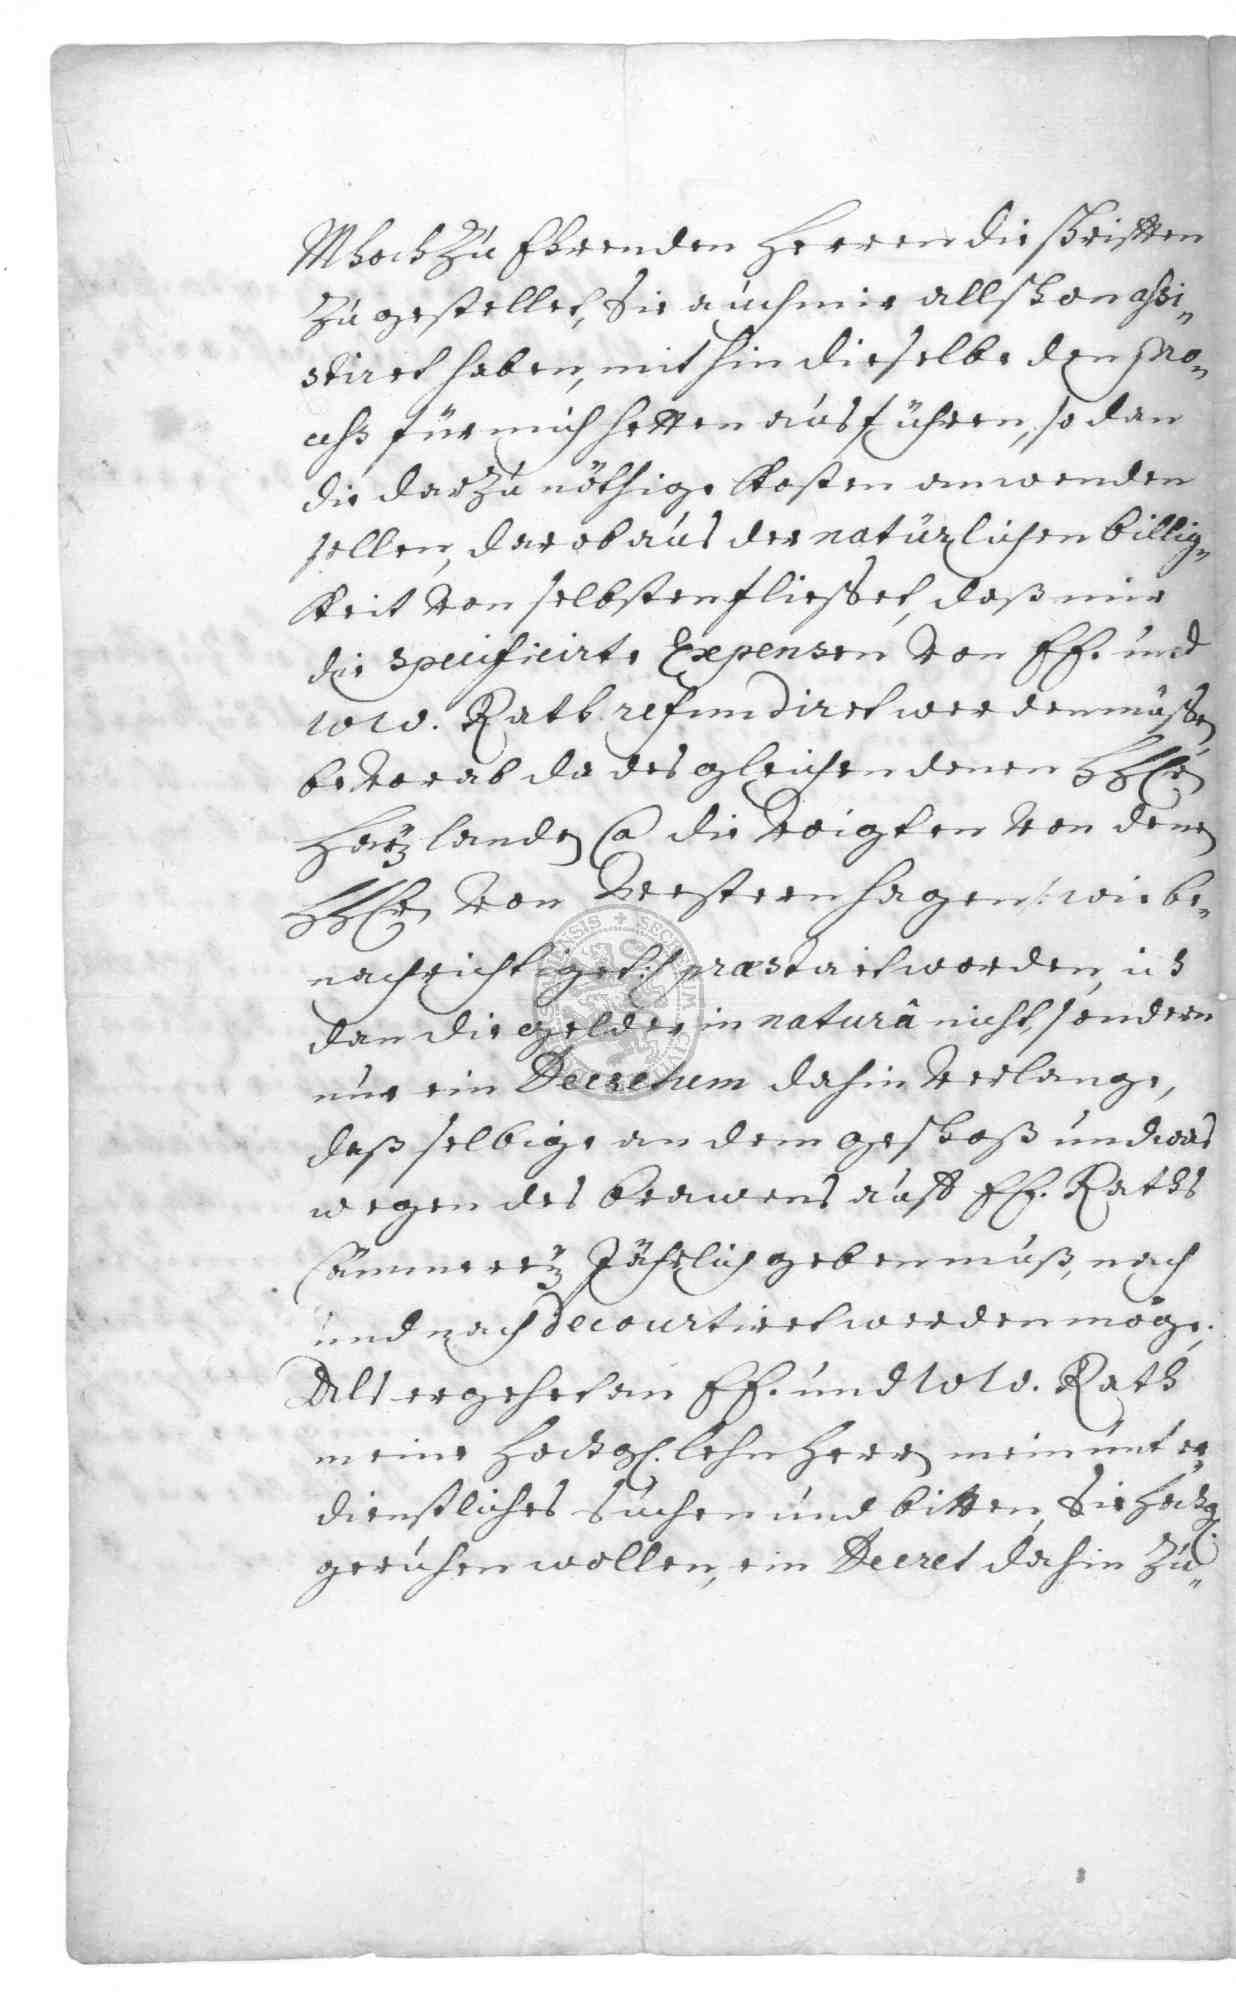 MhochZu Ehrenden Herren die schrifften
Zugestellet, Sie auch mir allschon assi-
stiret haben, mithin dieselbe den Pro-
cess für mich hetten ausführen, so dan
die darzu nöthige Kosten anwenden
sollen, darob aus der natürlichen billig-
keit von selbsten fliesset, daß mir
die specificirte Expensen von EE. und
wolw. Rath refundiret werden müssen
bevorab da desgleichen denen HHEn
Harz landen Ca die Voigten von denen
HHEn von Westernhagen /: wie be-
nachrichtiget :/ præstaret worden, ich
dan die gelder in naturâ nicht, sondern
nur ein Decretum dahin verlange,
daß selbige an dem geschoß und was
wegen des brawens auff EE. Raths
Cämmerey Jährlich geben muß, nach
und nach decourtiret werden möge,
Alß ergehet an EE. und wolw. Rath
meine Hochg. lehn Herrn mein unter-
dienstliches suchen und bitten, Sie Hochg.
geruhen wollen, ein Decret dahin zu-
SECRETUM CIVI